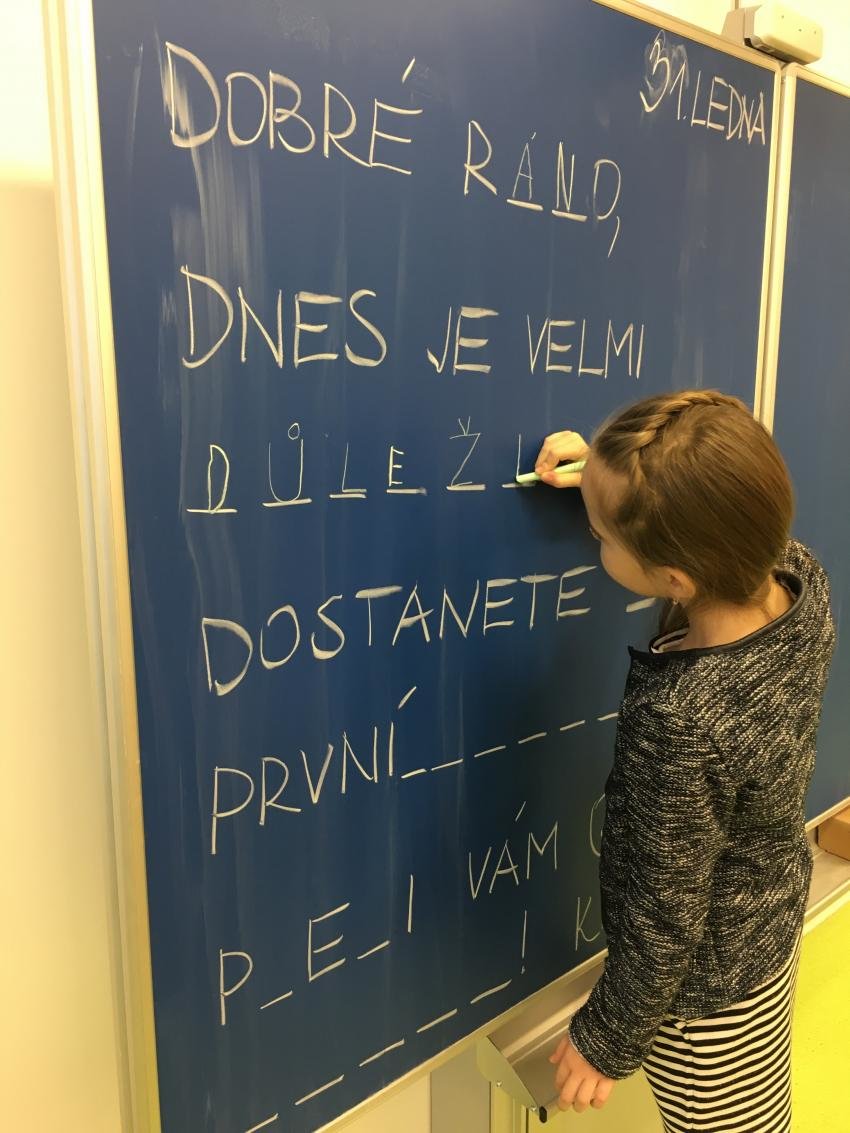 31. LEDNA
DOBRÉ RÁNO,
DNES JE VELMI
DŮLEŽ
DOSTANETE
PRVNÍ _ _ _ _ _
P _ E _ I VÁM
_ _ _ _ _ !